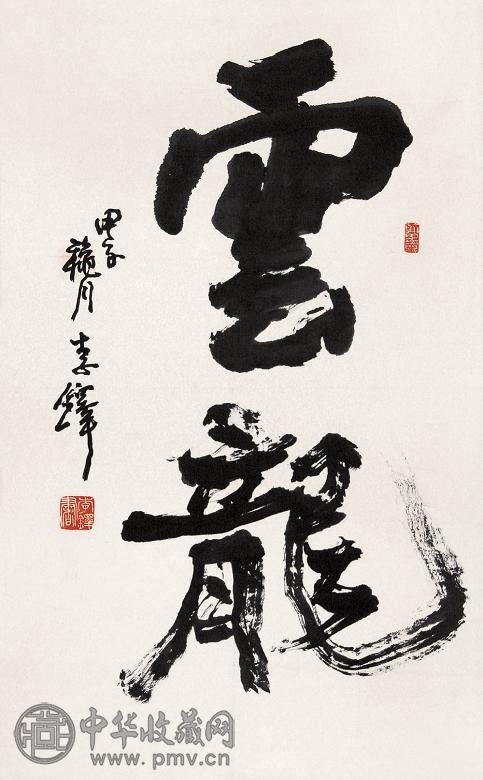 雲龍
甲子
穐月 李鐸
李鐸
中华收藏网
www.pmv.cn